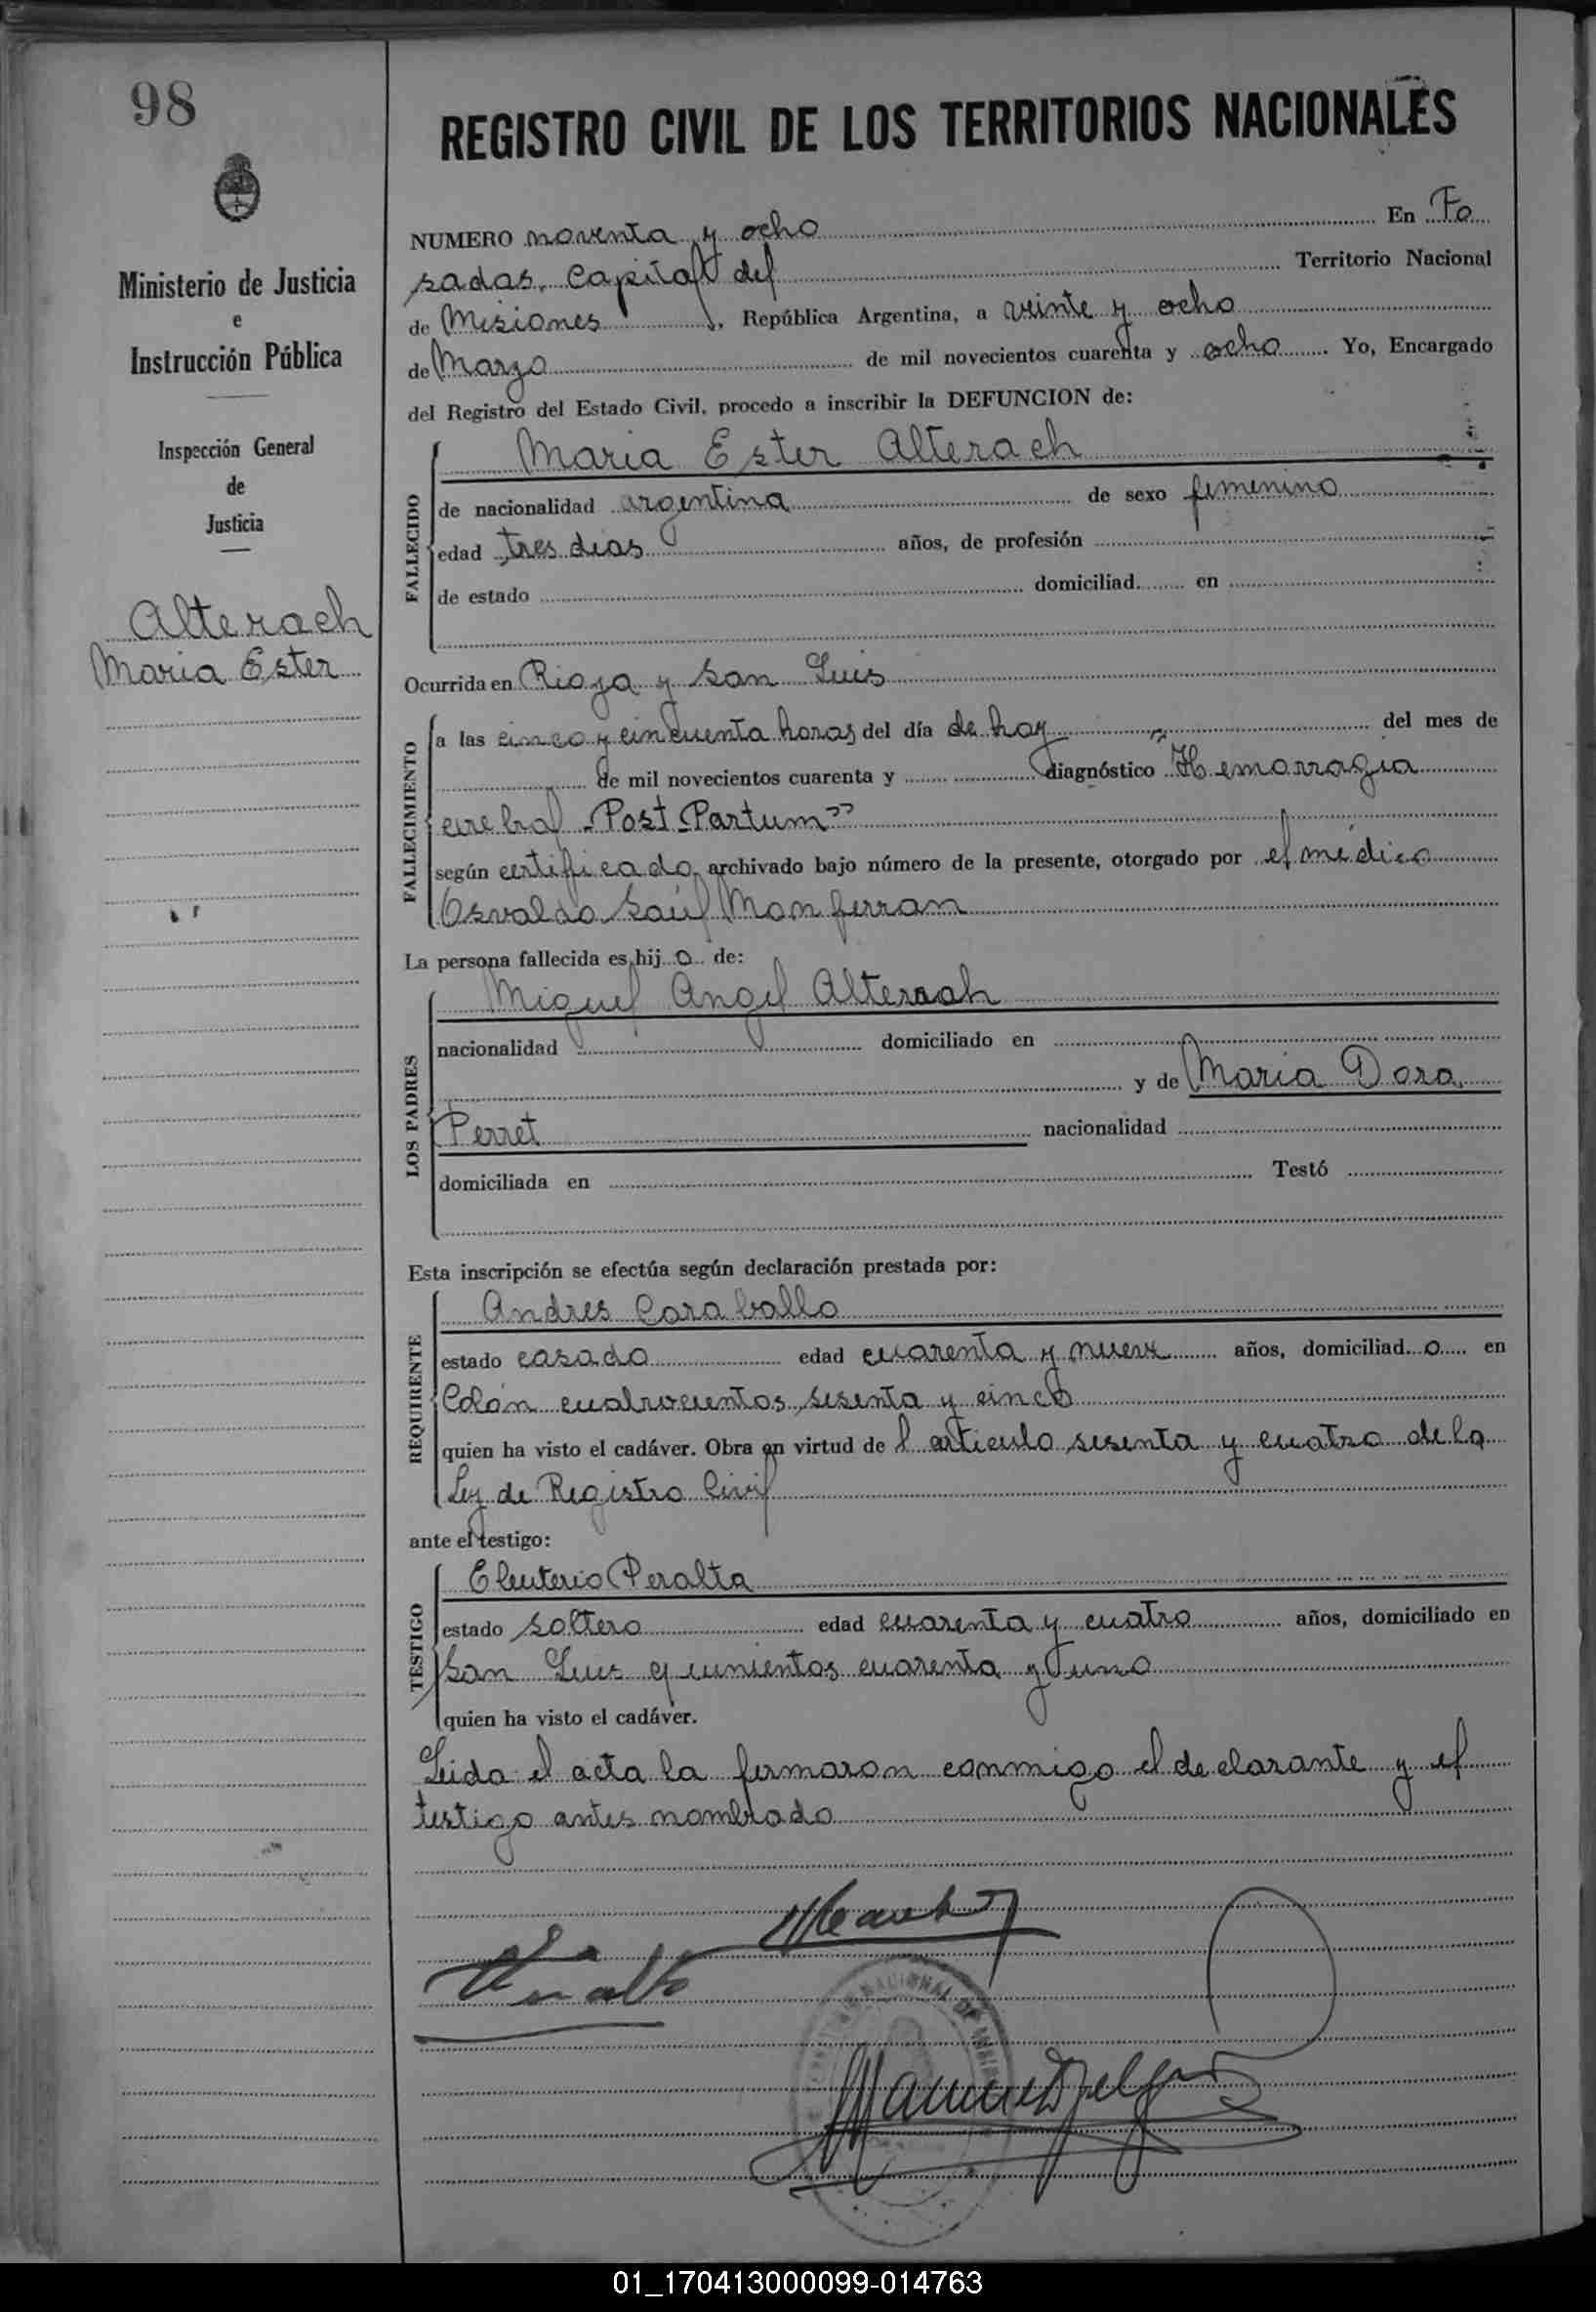 98
Ministerio de Justicia
e
Instrucción Pública
Inspección General
de
Justicia
Alterach
Maria Ester
REGISTRO CIVIL DE LOS TERRITORIOS NACIONALES
NUMERO noventa y ocho En Po
sadas, capital del Territorio Nacional
de Misiones, República Argentina, a veinte y ocho
de Marzo de mil novecientos cuarenta y ocho. Yo, Encargado
del Registro del Estado Civil, procedo a inscribir la DEFUNCION de:
FALLECIDO
Maria Ester Alterach
de nacionalidad argentina de sexo femenino
edad tres dias años, de profesión
de estado domiciliad en
Ocurrida en Rioja y San Luis
FALLECIMIENTO
a las cinco y cincuenta horas del día de hoy del mes de
de mil novecientos cuarenta y diagnóstico "Hemorragia
cerebral - Post-Partum"
según certificado archivado bajo número de la presente, otorgado por el médico
Osvaldo Saúl Monferran
La persona fallecida es hij o de:
LOS PADRES
Miguel Angel Alterach
nacionalidad domiciliado en
y de Maria Dora
Perret nacionalidad
domiciliada en Testó
Esta inscripción se efectúa según declaración prestada por:
REQUIRENTE
Andres Caraballo
estado casado edad cuarenta y nueve años, domiciliad o en
Colón cuatrocientos sesenta y cinco
quien ha visto el cadáver. Obra en virtud de l artículo sesenta y cuatro de la
Ley de Registro Civil
ante el testigo:
TESTIGO
Eleuterio Peralta
estado soltero edad cuarenta y cuatro años, domiciliado en
San Luis quinientos cuarenta y uno
quien ha visto el cadáver.
Leida el acta la firmaron conmigo el declarante y el
testigo antes nombrado
01_170413000099-014763